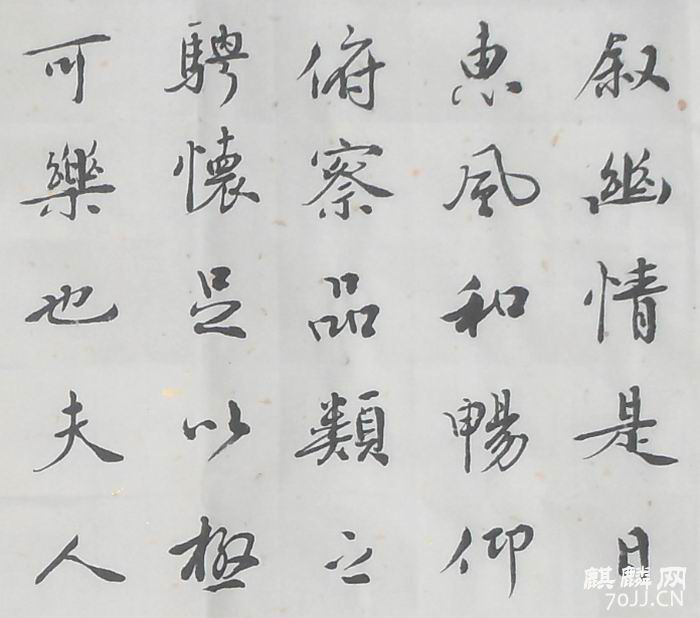 叙幽情是日
惠風和暢仰
俯察品類之
騁懷足以極
可樂也夫人
麒麟网
70JJ.CN